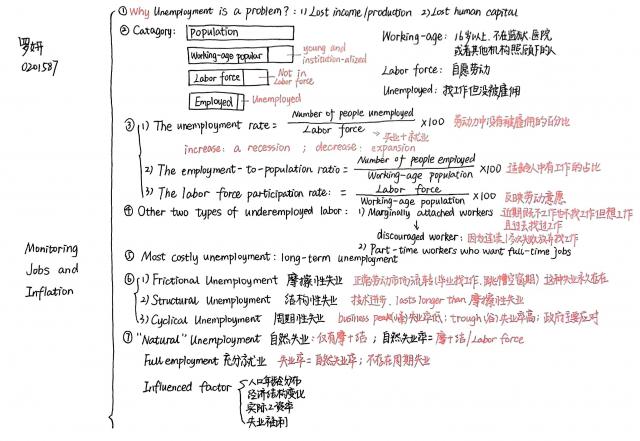 罗妍
0201587
Monitoring
Jobs and
Inflation
① Why Unemployment is a problem?: 1) Lost income/production 2) Lost human capital
② Catagory:
Population
Working-age popular
young and
institution-alized
Labor force
Not in
Labor force
Employed
Unemployed
Working-age: 16岁以上,不在监狱、医院
或者其他机构照顾下的人
Labor force: 自愿劳动
Unemployed: 找工作但没被雇佣
③ 1) The unemployment rate = Number of people unemployed / Labor force ×100 劳动力中没有被雇佣的百分比
失业+就业
increase: a recession ; decrease: expansion
2) The employment-to-population ratio = Number of people employed / Working-age population ×100 适龄人中有工作的占比
3) The labor force participation rate: = Labor force / Working-age population ×100 反映劳动意愿
④ Other two types of underemployed labor: 1) Marginally attached workers 近期既不工作也不找工作但想工作
且过去找过工作
discouraged worker: 因为连续失败放弃找工作
2) Part-time workers who want full-time jobs
⑤ Most costly unemployment: long-term unemployment
⑥ 1) Frictional Unemployment 摩擦性失业 正常劳动市场流转(毕业找工作、跳槽空窗期) 这种失业永久存在
2) Structural Unemployment 结构性失业 技术进步、lasts longer than 摩擦性失业
3) Cyclical Unemployment 周期性失业 business peak(峰)失业率低; trough(谷)失业率高; 政府主要应对
⑦ "Natural" Unemployment 自然失业: 仅有摩+结 ; 自然失业率=摩+结/Labor force
Full employment 充分就业 失业率=自然失业率; 不存在周期失业
Influenced factor
人口年龄分布
经济结构变化
实际工资率
失业福利